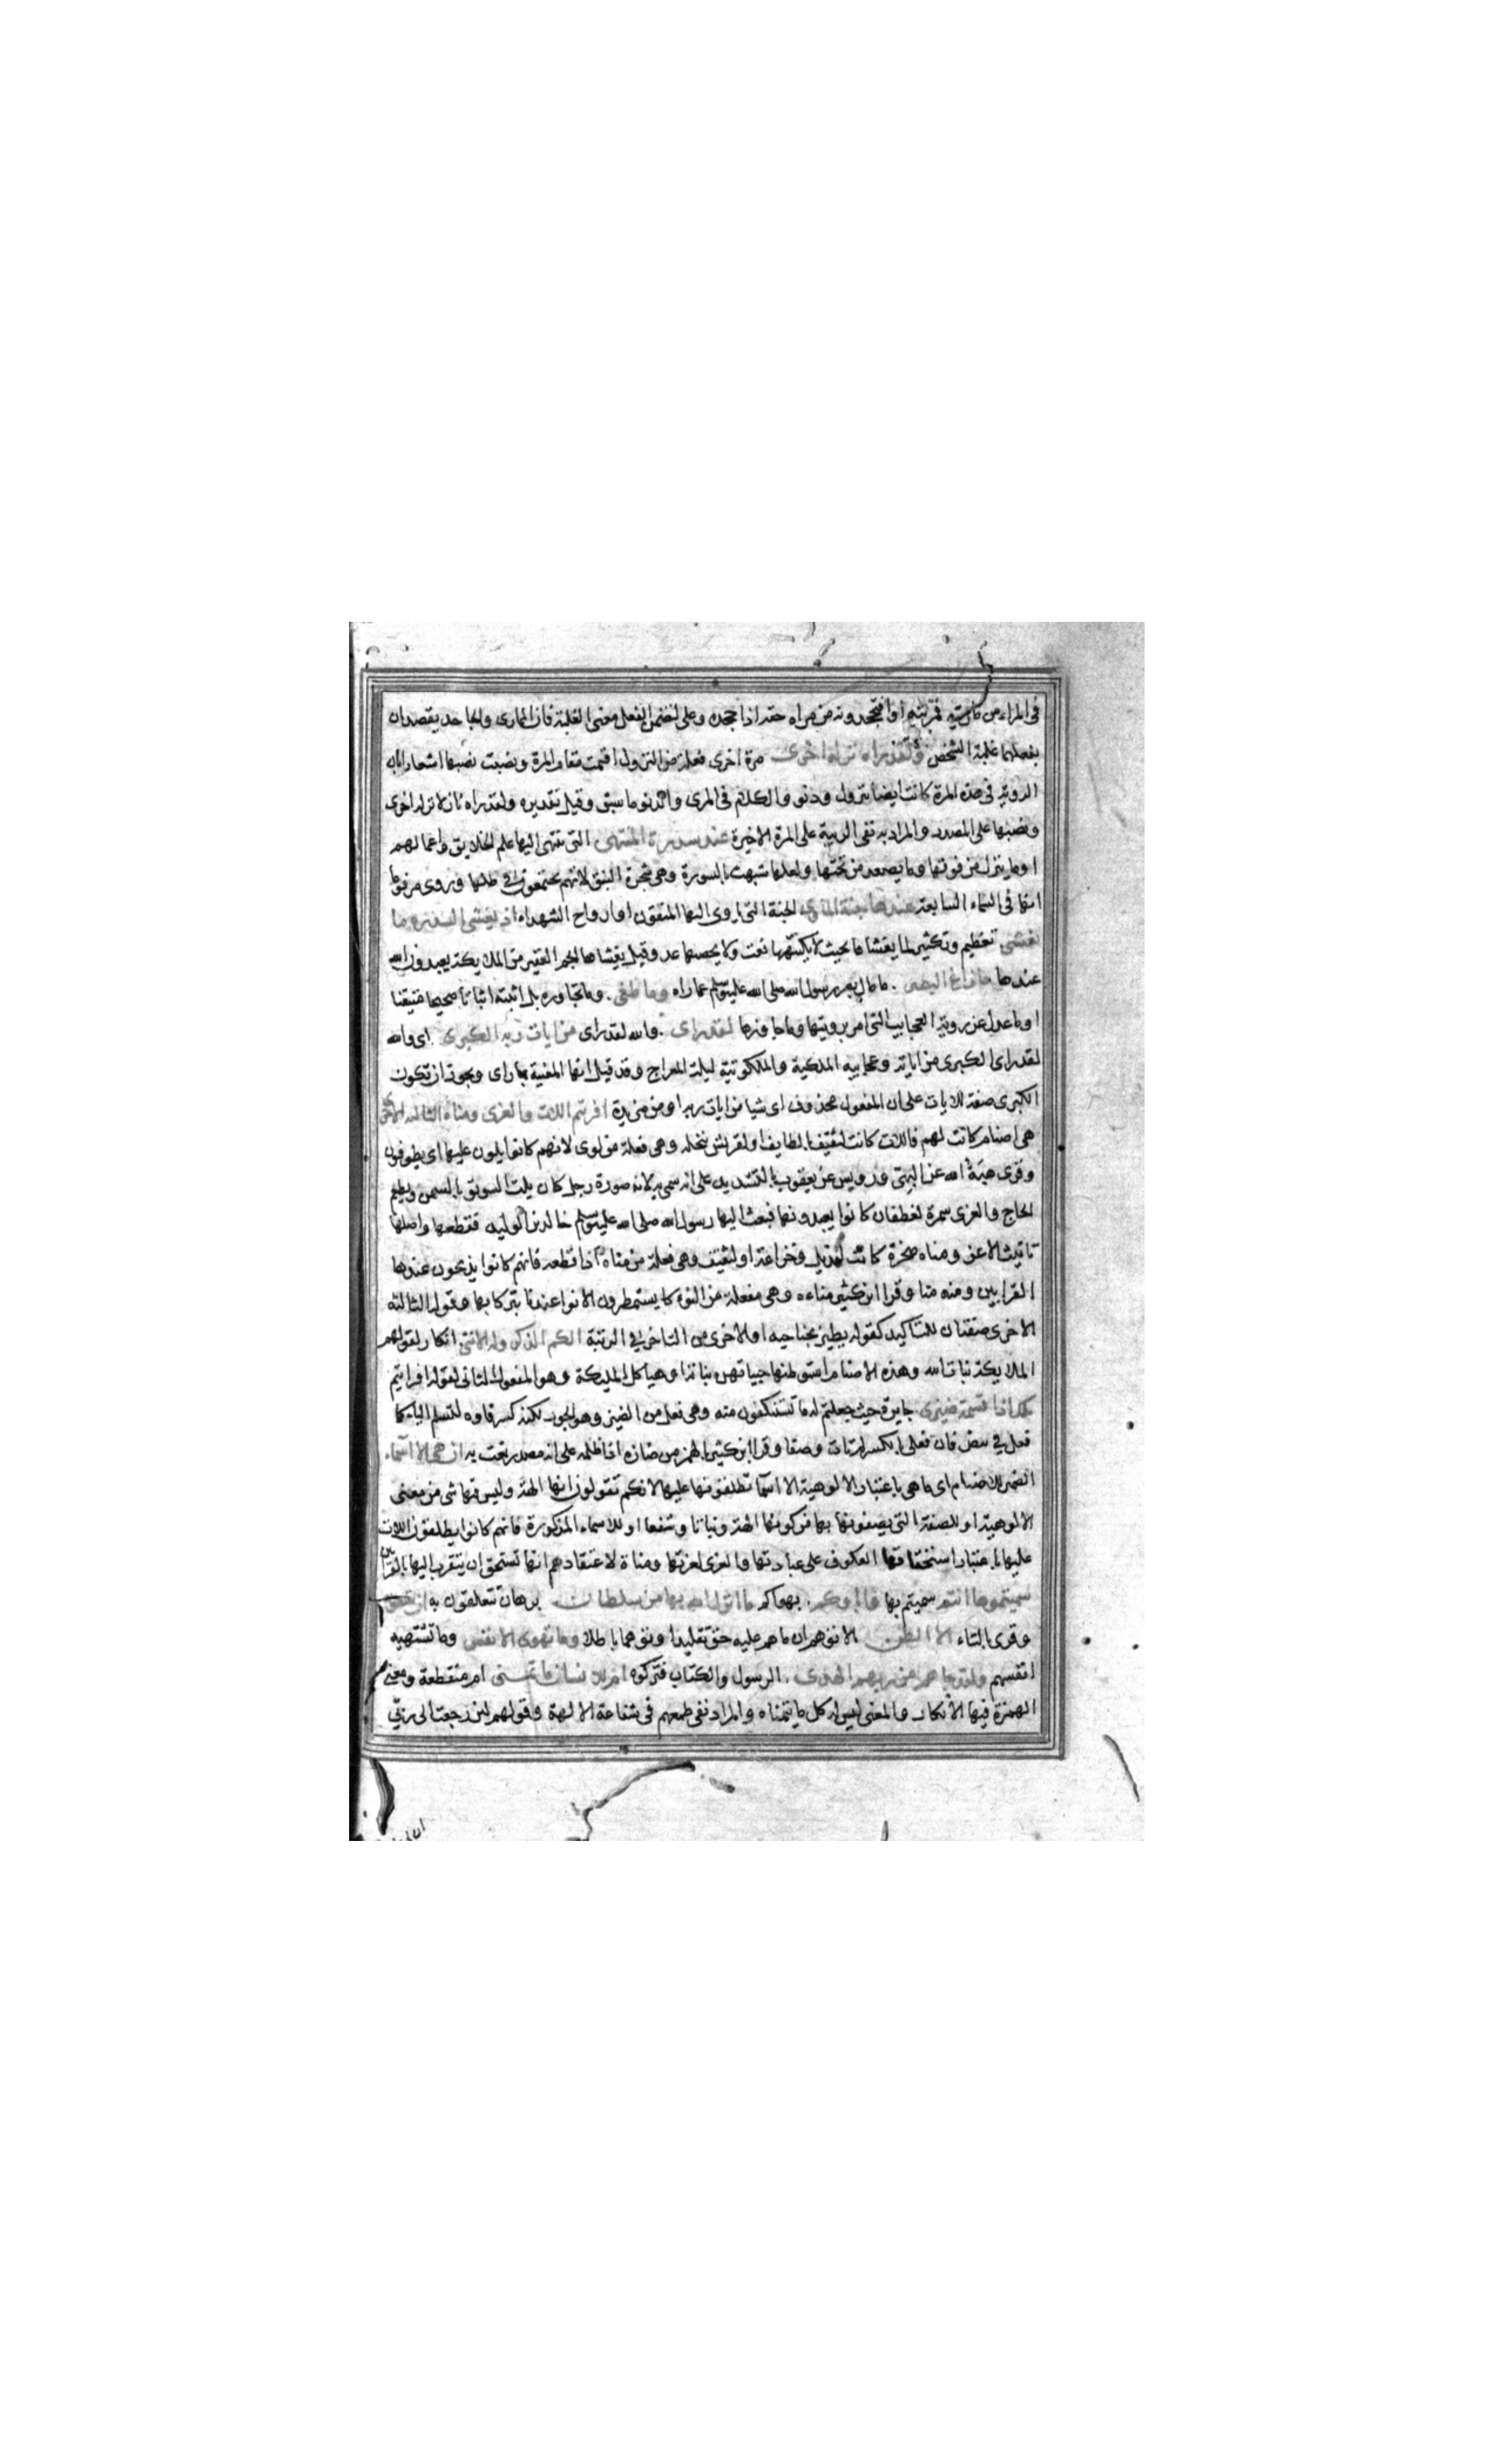 في المراء من ماريته فمريته او افتجحدونه من مراه حقه اذا جحده وعلى لتضمن الفعل معنى الغلبة فان المماري والجاحد يقصدان
بفعلهما غلبة الشخص ولقد راه نزلة اخرى مرة اخرى فعلة من النزول اقيمت مقام المرة ونصبت نصبها اشعارا بان
الروية في هذه المرة كانت ايضا بنزول ودنو والكلام في المرى والدنو ما سبق وقيل تقديره ولقد راه نازلا نزلة اخرى
ونصبها على المصدر والمراد به نفى الريبة على المرة الاخيرة عند سدرة المنتهى التي ينتهى اليها علم الخلايق واعمالهم
او ما ينزل من فوقها وما يصعد من تحتها ولعلها شبهت بالسدرة وهي شجرة النبق لانهم يجتمعون في ظلها وروى مرفوعا
انها في السماء السابعة عندها جنة الماوى الجنة التي ياوى اليها المتقون او ارواح الشهداء اذ يغشى السدرة ما
يغشى تعظيم وتكثير لما يغشاها بحيث لا يكتنهها نعت ولا يحصيها عد وقيل يغشاها الجم الغفير من الملايكة يعبدون الله
عندها ما زاغ البصر ما مال بصر رسول الله صلى الله عليه وسلم عما راه وما طغى وما تجاوزه بل اثبته اثباتا صحيحا متيقنا
او ما عدل عن روية العجايب التي امر برويتها وما جاوزها لقد راى والله لقد راى من ايات ربه الكبرى اى والله
لقد راى الكبرى من اياته وعجايبه الملكية والملكوتية ليلة المعراج وقد قيل انها المعنية بما راى ويجوز ان تكون
الكبرى صفة للايات على ان المفعول محذوف اى شيا من ايات ربه او من مزيدة افرايتم اللات والعزى ومناة الثالثة الاخرى
هي اصنام كانت لهم فاللات كانت لثقيف بالطايف او لقريش بنخلة وهي فعلة من لوى لانهم كانوا يلوون عليها اى يطوفون
وقرى هبة الله عن البزي ورويس عن يعقوب بالتشديد على انه سمى به لانه صورة رجل كان يلت السويق بالسمن ويطعم
الحاج والعزى سمرة لغطفان كانوا يعبدونها فبعث اليها رسول الله صلى الله عليه وسلم خالد بن الوليد فقطعها واصلها
تانيث الاعز ومناه صخرة كانت لهذيل وخزاعة او لثقيف وهي فعلة من مناه اذا قطعه فانهم كانوا يذبحون عندها
القرابين ومنه منا وقرا ابن كثير مناءه وهي مفعلة من النوء كا يستمطرون الانوا عندها تبركا بها وقوله الثالثة
الاخرى صفتان للتاكيد كقوله يطير بجناحيه او الاخرى من التاخر في الرتبة الكم الذكر وله الانثى انكار لقولهم
الملايكة بنات الله وهذه الاصنام استوطنها جنيات هن بناته او هياكل المليكة وهو المفعول الثانى لقوله افرايتم
تلك اذا قسمة ضيزى جايرة حيث جعلتم له ما تستنكفون منه وهي فعلى من الضيز وهو الجور لكنه كسر فاوه لتسلم الياء كما
فعل في بيض فان فعلى بالكسر لم تات وصفا وقرا ابن كثير بالهمز من ضازه اذا ظلمه على انه مصدر نعت به ان هي الا اسماء
الضمير للاصنام اى ما هي باعتبار الالوهية الا اسما تطلقونها عليها لانكم تقولون انها الهة وليس فيها شى من معنى
الالوهية او للصفة التي يصفونها بها من كونها الهة وبناتا وشفعا او للاسماء المذكورة فانهم كانوا يطلقون اللات
عليها باعتبار استحقاقها العكوف على عبادتها والعزى لعزتها ومناة لاعتقادهم انها تستحق ان يتقرب اليها بالقرابين
سميتموها انتم سميتم بها واباوكم بهواكم ما انزل الله بها من سلطان برهان تتعلقون به ان يتبعون
وقرى بالتاء الا الظن الا توهم ان ما هم عليه حق تقليدا وتوهما باطلا وما تهوى الانفس وما تشتهيه
انفسهم ولقد جاءهم من ربهم الهدى الرسول والكتاب فتركوه ام للانسان ما تمنى ام منقطعة ومعنى
الهمزة فيها الانكار والمعنى ليس له كل ما يتمناه والمراد نفى طمعهم في شفاعة الالهة وقولهم لئن رجعت الى ربي